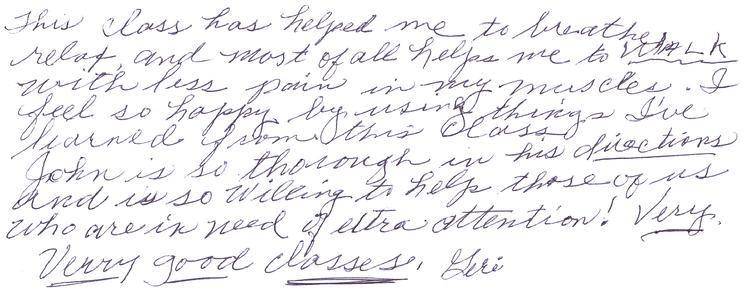 This class has helped me to breathe,
relax, and most of all helps me to WALK
with less pain in my muscles. I
feel so happy by using things I've
learned from this class
John is so thorough in his directions
and is so willing to help those of us
who are in need of extra attention! Very,
Verry good classes. Geri